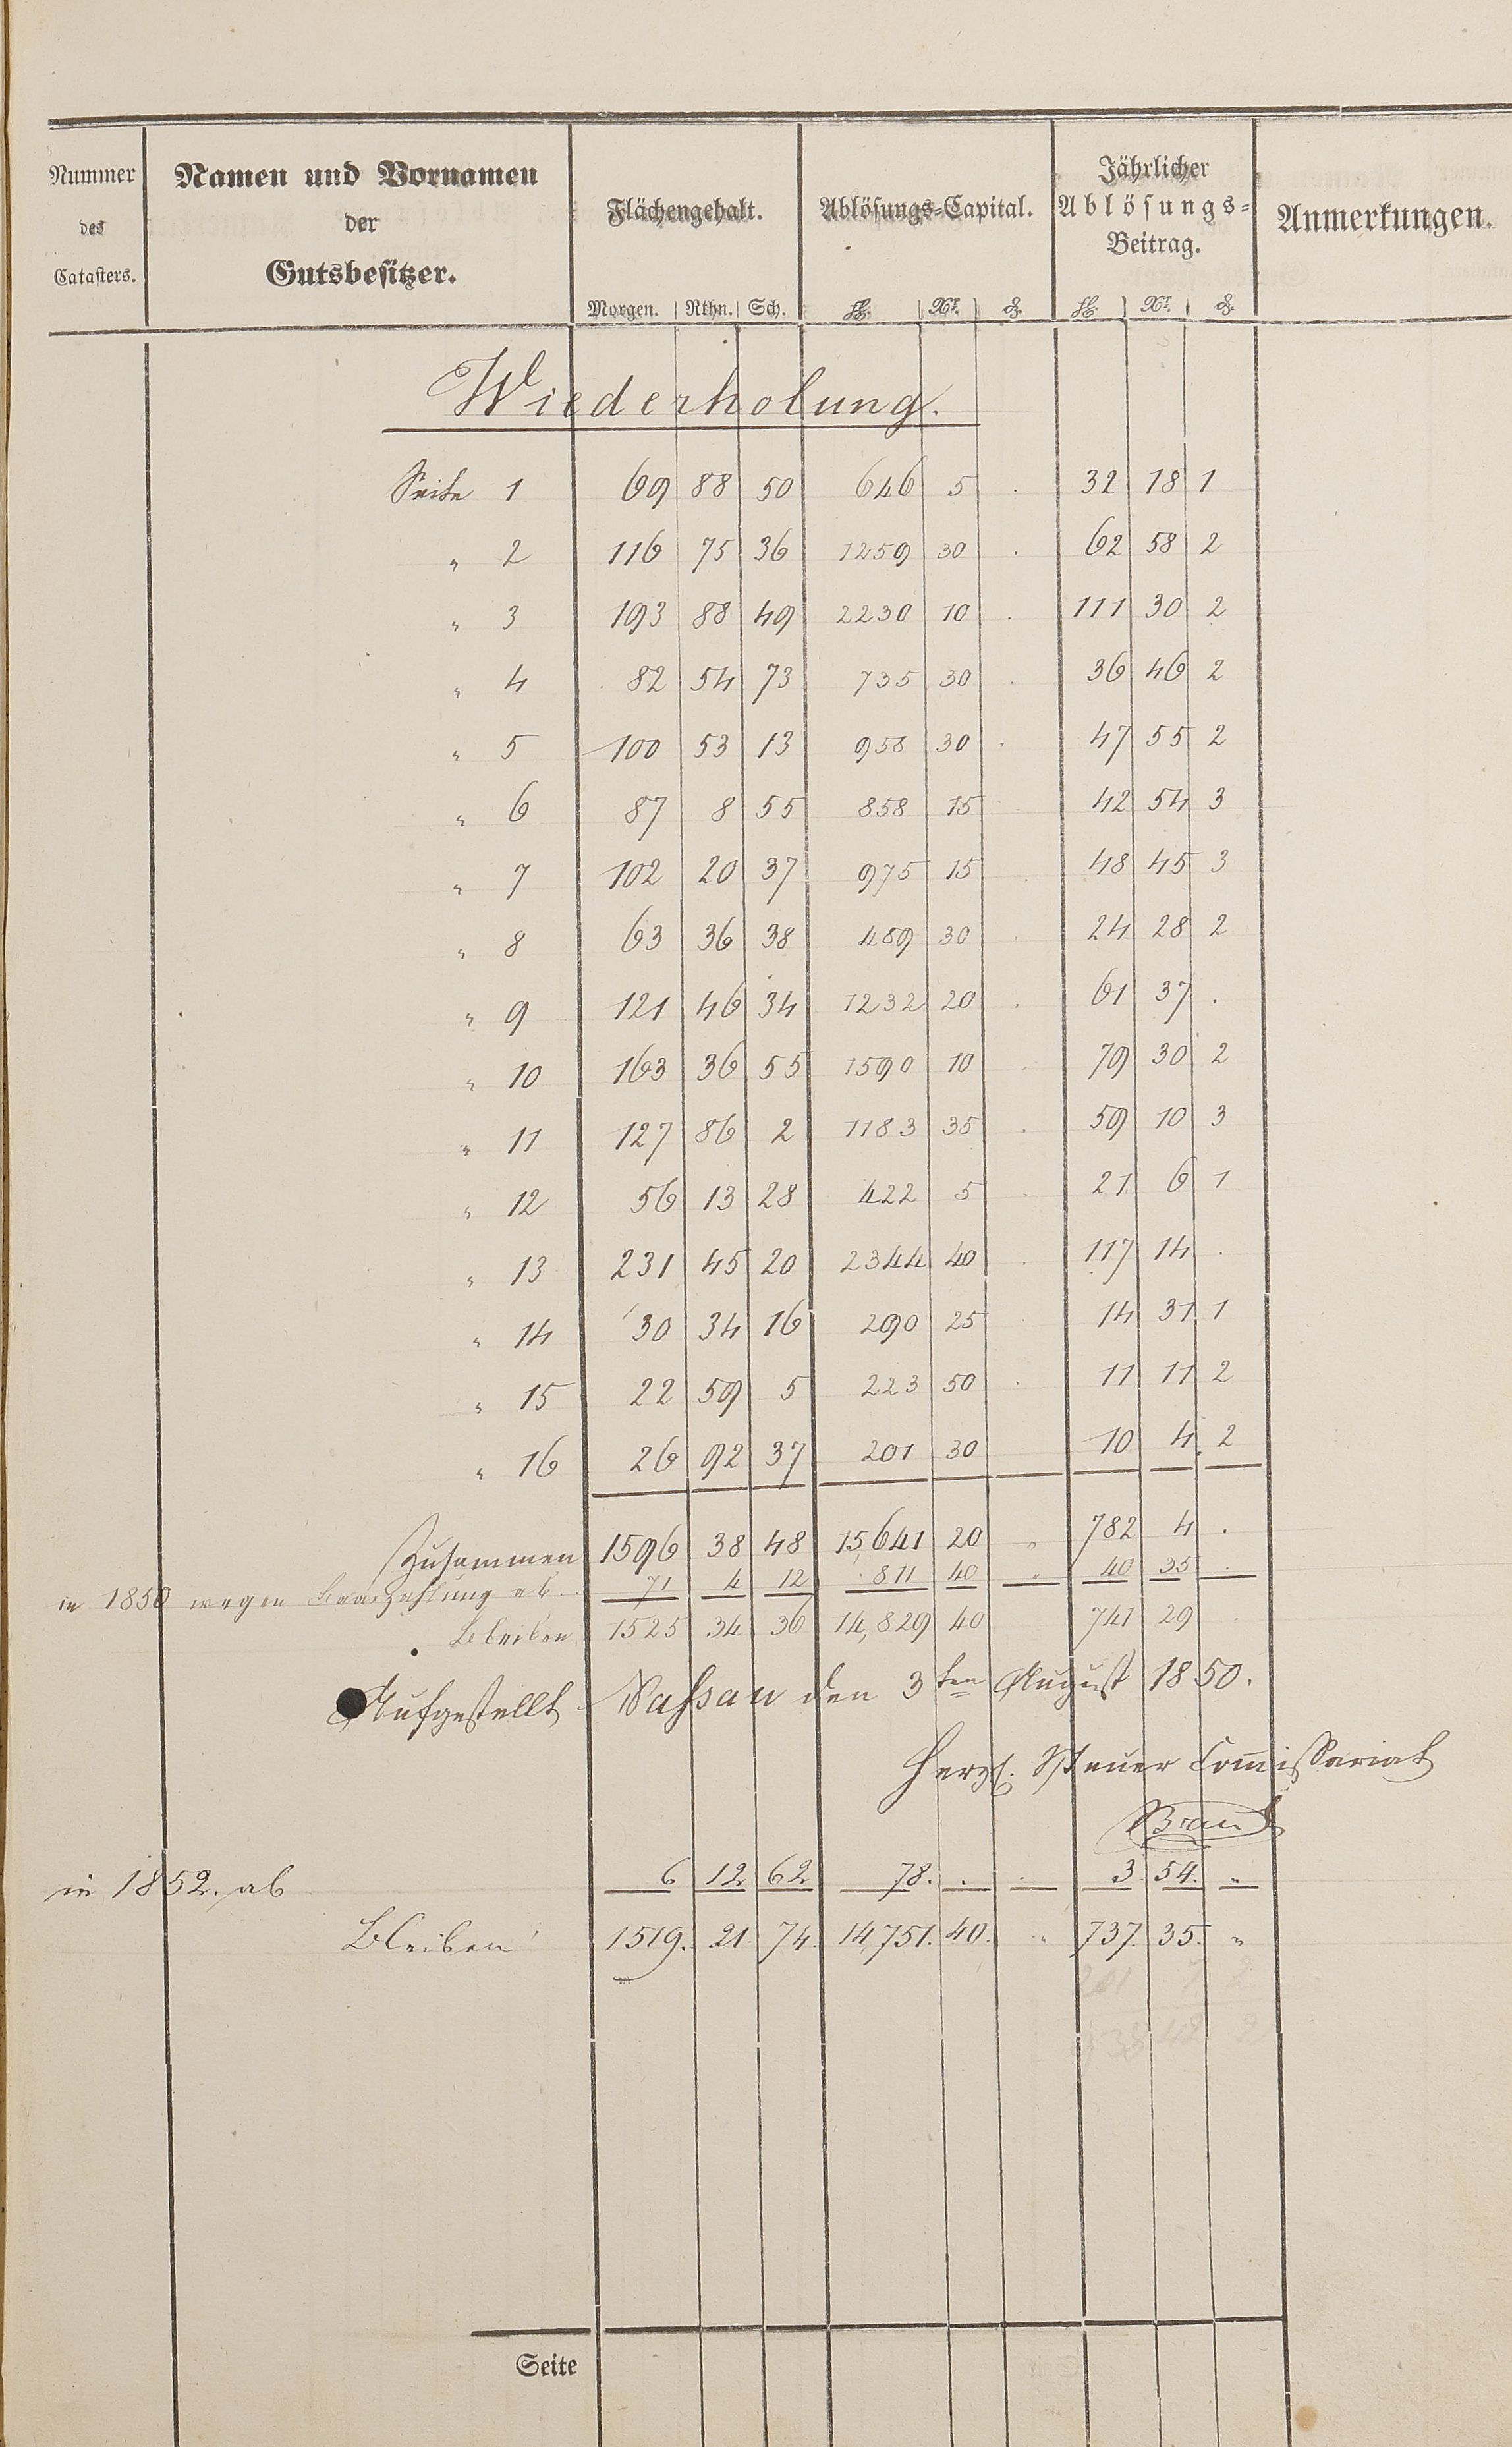 Nummer des Catasters. | Namen und Vornamen der Gutsbesitzer. | Flächengehalt. | Ablösungs=Capital. | Jährlicher Ablösungs=Beitrag. | Anmerkungen.
Morgen. | Rthn. | Sch. | fl. | Xr. | ₰. | fl. | Xr. | ₰.
Wiederholung.
Seite 1 69 88 50 646 5 . 32 18 1
" 2 116 75 36 1259 30 . 62 58 2
" 3 193 88 49 2230 10 . 111 30 2
" 4 82 54 73 735 30 . 36 46 2
" 5 100 53 13 958 30 . 47 55 2
" 6 87 8 55 858 15 42 54 3
" 7 102 20 37 975 15 . 48 45 3
" 8 63 36 38 489 30 . 24 28 2
" 9 121 46 34 1232 20 . 61 37 .
" 10 163 36 55 1590 10 . 79 30 2
" 11 127 86 2 1183 35 . 59 10 3
" 12 56 13 28 422 5 . 21 6 1
" 13 231 45 20 2344 40 . 117 14 .
" 14 30 34 16 290 25 14 31 1
" 15 22 59 5 223 50 . 11 11 2
" 16 26 92 37 201 30 10 4 2
Zusammen 1596 38 48 15,641 20 " 782 4 .
in 1850 wegen Baarzahlung ab. 71 4 12 811 40 " 40 35 .
Bleiben 1525 34 36 14,829 40 741 29
Aufgestellt Nassau den 3ten August 1850.
Herzl. Steuer Commissariat
Braun
in 1852. ab 6 12 62 78. . . 3 54. "
Bleiben 1519. 21. 74. 14,751. 40. " 737. 35. "
Seite